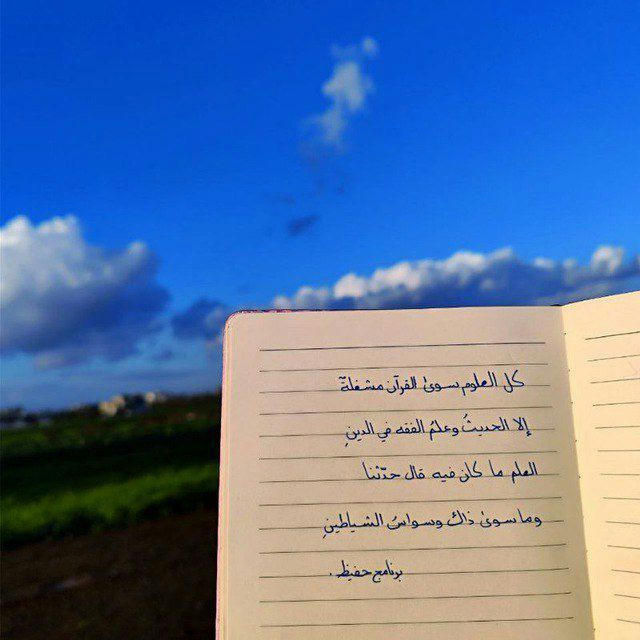 كل العلوم سوى القرآن مشغلةٌ
إلا الحديثُ وعلمُ الفقه في الدينِ
العلم ما كان فيه قال حدّثنا
وما سوى ذاك وسواسُ الشياطينِ
برنامج حفيظ .